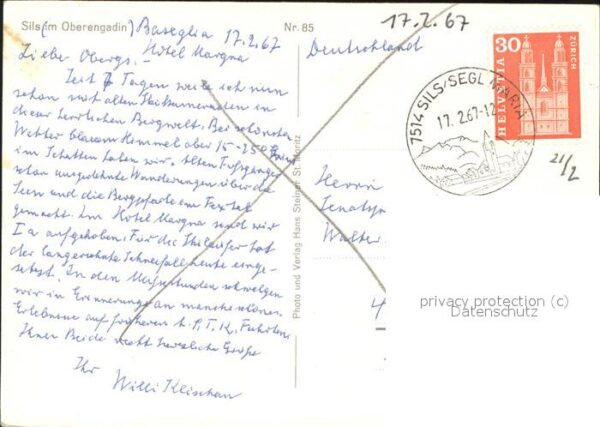 Sils im Oberengadin) Baseglia 17.2.67
Hotel Margna
Liebe Obergs. –
Seit 7 Tagen weile ich nun
schon mit alten Skikameraden in
dieser herrlichen Bergwelt. Bei schönstem
Wetter blauem Himmel aber 15-25°
im Schatten haben wir alten Fussgänger
schon ausgedehnte Wanderungen über die
Seen und die Bergpfade im Fextal
gemacht. Im Hotel Margna sind wir
Ia aufgehoben. Für die Skiläufer hat
der langersehnte Schneefall heute einge-
setzt. In den Mußestunden schwelgen
wir in Erinnerung an manche schönen
Erlebnisse auf früheren Fahrten.
Ihnen Beide recht herzliche Grüße
Ihr
Willi Klischan
Nr. 85
Photo und Verlag Hans Steiner St. Moritz
17.2.67
Deutschland
7514 SILS/SEGL MARIA
17.2.67-12
HELVETIA
30
ZÜRICH
21/2
Herrn
Walter
privacy protection (c)
Datenschutz